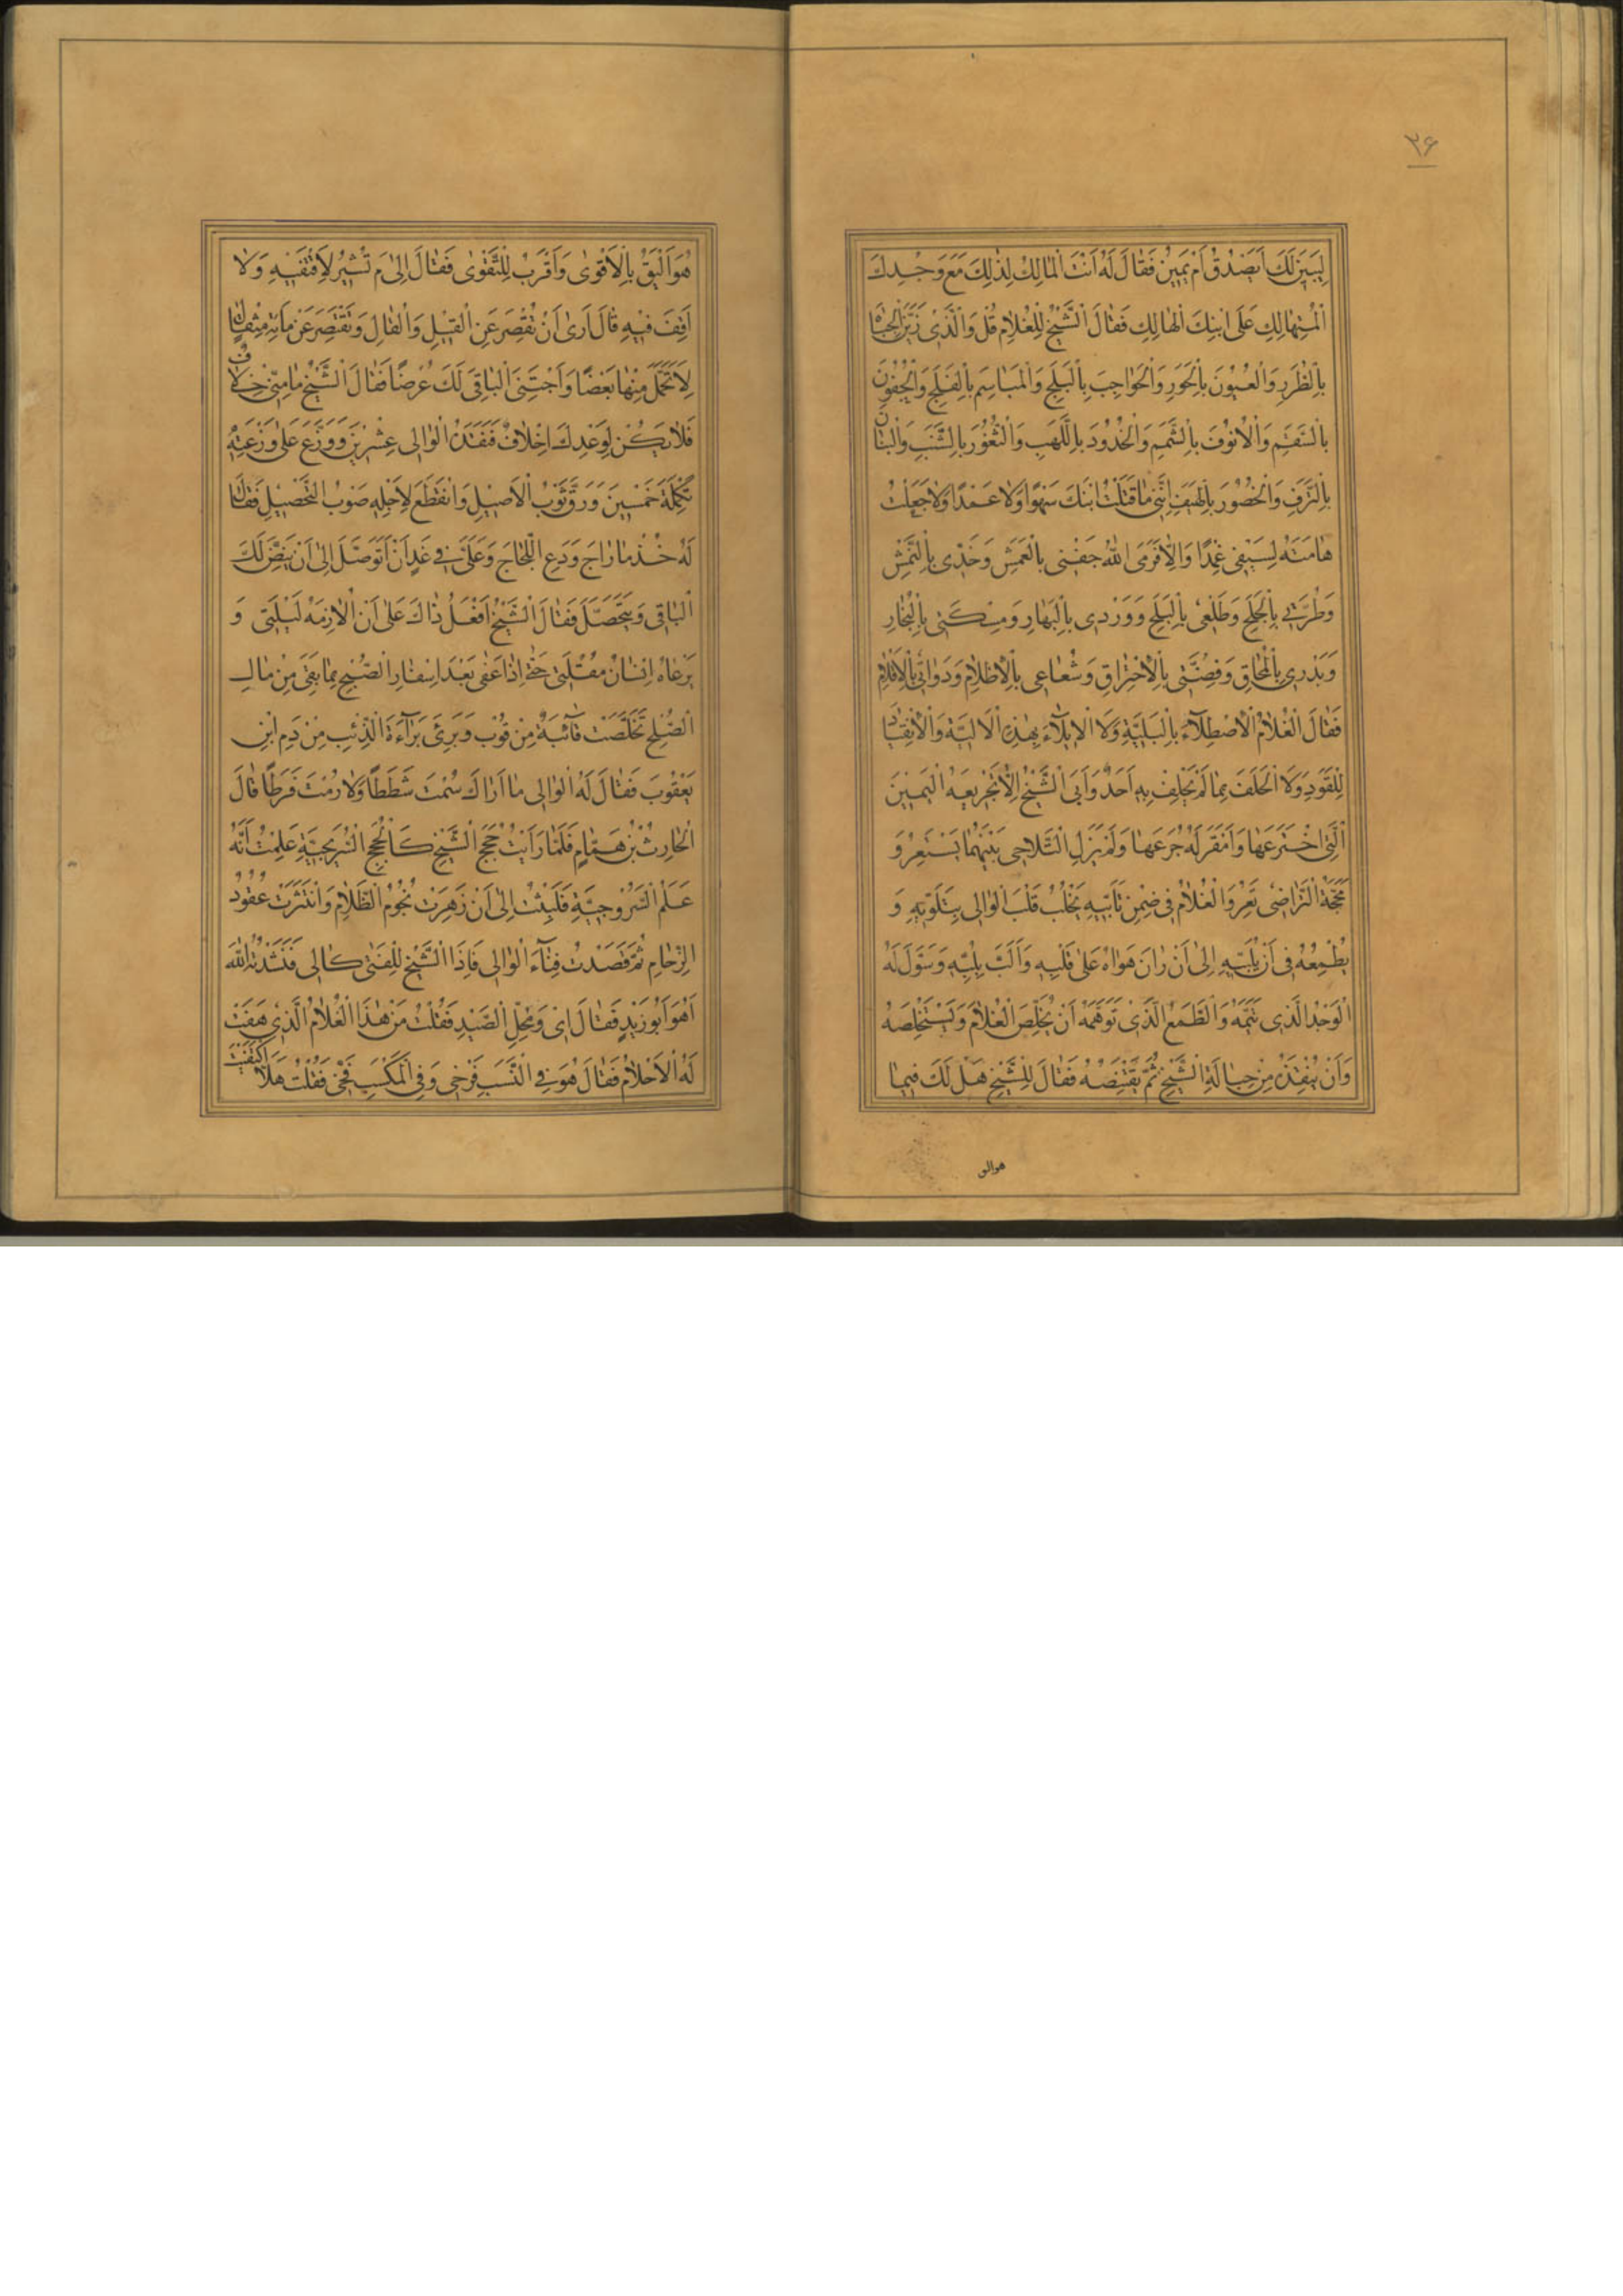 ۳۶
لِيَبِينَ لَكَ اَيَصْدُقُ اَمْ يَمِينُ فَقَالَ لَهُ اَنْتَ الْمَالِكُ لِذٰلِكَ مَعَ وَجْدِكَ
الْمُتَهَالِكِ عَلَى ابْنِكَ الْهَالِكِ فَقَالَ الشَّيْخُ لِلْغُلَامِ قُلْ وَالَّذِى زَيَّنَ الْجِبَاهَ
بِالطُّرَرِ وَالْعُيُونَ بِالْحَوَرِ وَالْحَوَاجِبَ بِالْبَلَجِ وَالْمَبَاسِمَ بِالْفَلَجِ وَالْجُفُونَ
بِالسَّقَمِ وَالْاُنُوفَ بِالشَّمَمِ وَالْخُدُودَ بِاللَّهَبِ وَالثُّغُورَ بِالشَّنَبِ وَالْبَنَانَ
بِالتَّرَفِ وَالْخُصُورَ بِالْهَيَفِ اِنَّنِى مَا قَتَلْتُ ابْنَكَ سَهْوًا وَلَا عَمْدًا وَلَا جَعَلْتُ
هَامَتَهُ لِسَيْفِى غِمْدًا وَاِلَّا فَرَمَى اللّٰهُ جَفْنِى بِالْعَمَشِ وَخَدِّى بِالنَّمَشِ
وَطُرَّتِى بِالْجَلَحِ وَطَلْعِى بِالْبَلَحِ وَوَرْدِى بِالْبَهَارِ وَمِسْكَتِى بِالْبُخَارِ
وَبَدْرِى بِالْمُحَاقِ وَفِضَّتِى بِالْاِحْتِرَاقِ وَشُعَاعِى بِالْاِظْلَامِ وَدَوَاتِى بِالْاَقْلَامِ
فَقَالَ الْغُلَامُ الْاِصْطِلَآءَ بِالْبَلِيَّةِ وَلَا الْاِيلَآءَ بِهٰذِهِ الْاَلِيَّةِ وَالْاِنْقِيَادَ
لِلْقَوَدِ وَلَا الْحَلِفَ بِمَا لَمْ يَحْلِفْ بِهِ اَحَدٌ وَاَبَى الشَّيْخُ اِلَّا تَجْرِيعَهُ الْيَمِينَ
الَّتِى اخْتَرَعَهَا وَاَمْقَرَ لَهُ جُرَعَهَا وَلَمْ يَزَلِ التَّلَاحِى بَيْنَهُمَا يَسْتَعِرُ وَ
مَحَجَّةُ التَّرَاضِى تَعِرُ وَالْغُلَامُ فِى ضِمْنِ تَأَبِّيهِ يَخْلُبُ قَلْبَ الْوَالِى بِتَلَوِّيهِ وَ
يُطْمِعُهُ فِى اَنْ يُلَبِّيهِ اِلٰى اَنْ رَانَ هَوَاهُ عَلٰى قَلْبِهِ وَاَلَبَّ بِلُبِّهِ وَسَوَّلَ لَهُ
الْوَجْدُ الَّذِى تَيَّمَهُ وَالطَّمَعُ الَّذِى تَوَهَّمَهُ اَنْ يُخَلِّصَ الْغُلَامَ وَيَسْتَخْلِصَهُ
وَاَنْ يُنْقِذَهُ مِنْ حِبَالَةِ الشَّيْخِ ثُمَّ يَقْتَنِصَهُ فَقَالَ لِلشَّيْخِ هَلْ لَكَ فِيمَا
هُوَ اَلْيَقُ بِالْاَقْوٰى وَاَقْرَبُ لِلتَّقْوٰى فَقَالَ اِلٰى مَ تُشِيرُ لِاَقْتَفِيَهِ وَلَا
اَقِفَ فِيهِ قَالَ اَرٰى اَنْ تُقْصِرَ عَنِ الْقِيلِ وَالْقَالِ وَتَقْتَصِرَ عَنْ مِأَتِهِ مِثْقَالٍ
لِاَتَحَمَّلَ مِنْهَا بَعْضًا وَاَجْتَنِىَ الْبَاقِىَ لَكَ عُرْضًا فَقَالَ الشَّيْخُ مَا مِنِّى خِلَافٌ
فَلَا يَكُنْ لِوَعْدِكَ اِخْلَافٌ فَنَقَدَهُ الْوَالِى عِشْرِينَ وَوَزَّعَ عَلٰى وَزَعَتِهِ
تَكْمِلَةَ خَمْسِينَ وَرَقَّ ثَوْبُ الْاَصِيلِ وَانْقَطَعَ لِاَجْلِهِ صَوْبُ التَّحْصِيلِ فَقَالَ
لَهُ خُذْ مَا رَاجَ وَدَعِ اللَّجَاجَ وَعَلَىَّ فِى غَدٍ اَنْ اَتَوَصَّلَ اِلٰى اَنْ يَنِضَّ لَكَ
الْبَاقِى وَيَتَحَصَّلَ فَقَالَ الشَّيْخُ اَفْعَلُ ذَاكَ عَلٰى اَنْ اُلَازِمَهُ لَيْلَتِى وَ
يَرْعَاهُ اِنْسَانُ مُقْلَتِى حَتّٰى اِذَا عَفٰى بَعْدَ اِسْفَارِ الصُّبْحِ بِمَا بَقِىَ مِنْ مَالِ
الصُّلْحِ تَخَلَّصَتْ قَآئِبَةٌ مِنْ قُوبٍ وَبَرِئَ بَرَآءَةَ الذِّئْبِ مِنْ دَمِ ابْنِ
يَعْقُوبَ فَقَالَ لَهُ الْوَالِى مَا اَرَاكَ سُمْتَ شَطَطًا وَلَا رُمْتَ فَرَطًا قَالَ
الْحَارِثُ بْنُ هَمَّامٍ فَلَمَّا رَاَيْتُ حُجَجَ الشَّيْخِ كَالْحُجَجِ السُّرَيْجِيَّةِ عَلِمْتُ اَنَّهُ
عَلَمُ السَّرُوجِيَّةِ فَلَبِثْتُ اِلٰى اَنْ زَهَرَتْ نُجُومُ الظَّلَامِ وَانْتَثَرَتْ عُقُودُ
الزِّحَامِ ثُمَّ قَصَدْتُ فِنَآءَ الْوَالِى فَاِذَا الشَّيْخُ لِلْفَتٰى كَالِى فَنَشَدْتُهُ اللّٰهَ
اَهُوَ اَبُو زَيْدٍ فَقَالَ اِى وَمُحِلِّ الصَّيْدِ فَقُلْتُ مَنْ هٰذَا الْغُلَامُ الَّذِى هَفَتْ
لَهُ الْاَحْلَامُ فَقَالَ هُوَ فِى النَّسَبِ فَرْخِى وَفِى الْمَكْسَبِ فَخِّى فَقُلْتُ هَلَّا اكْتَفَيْتَ